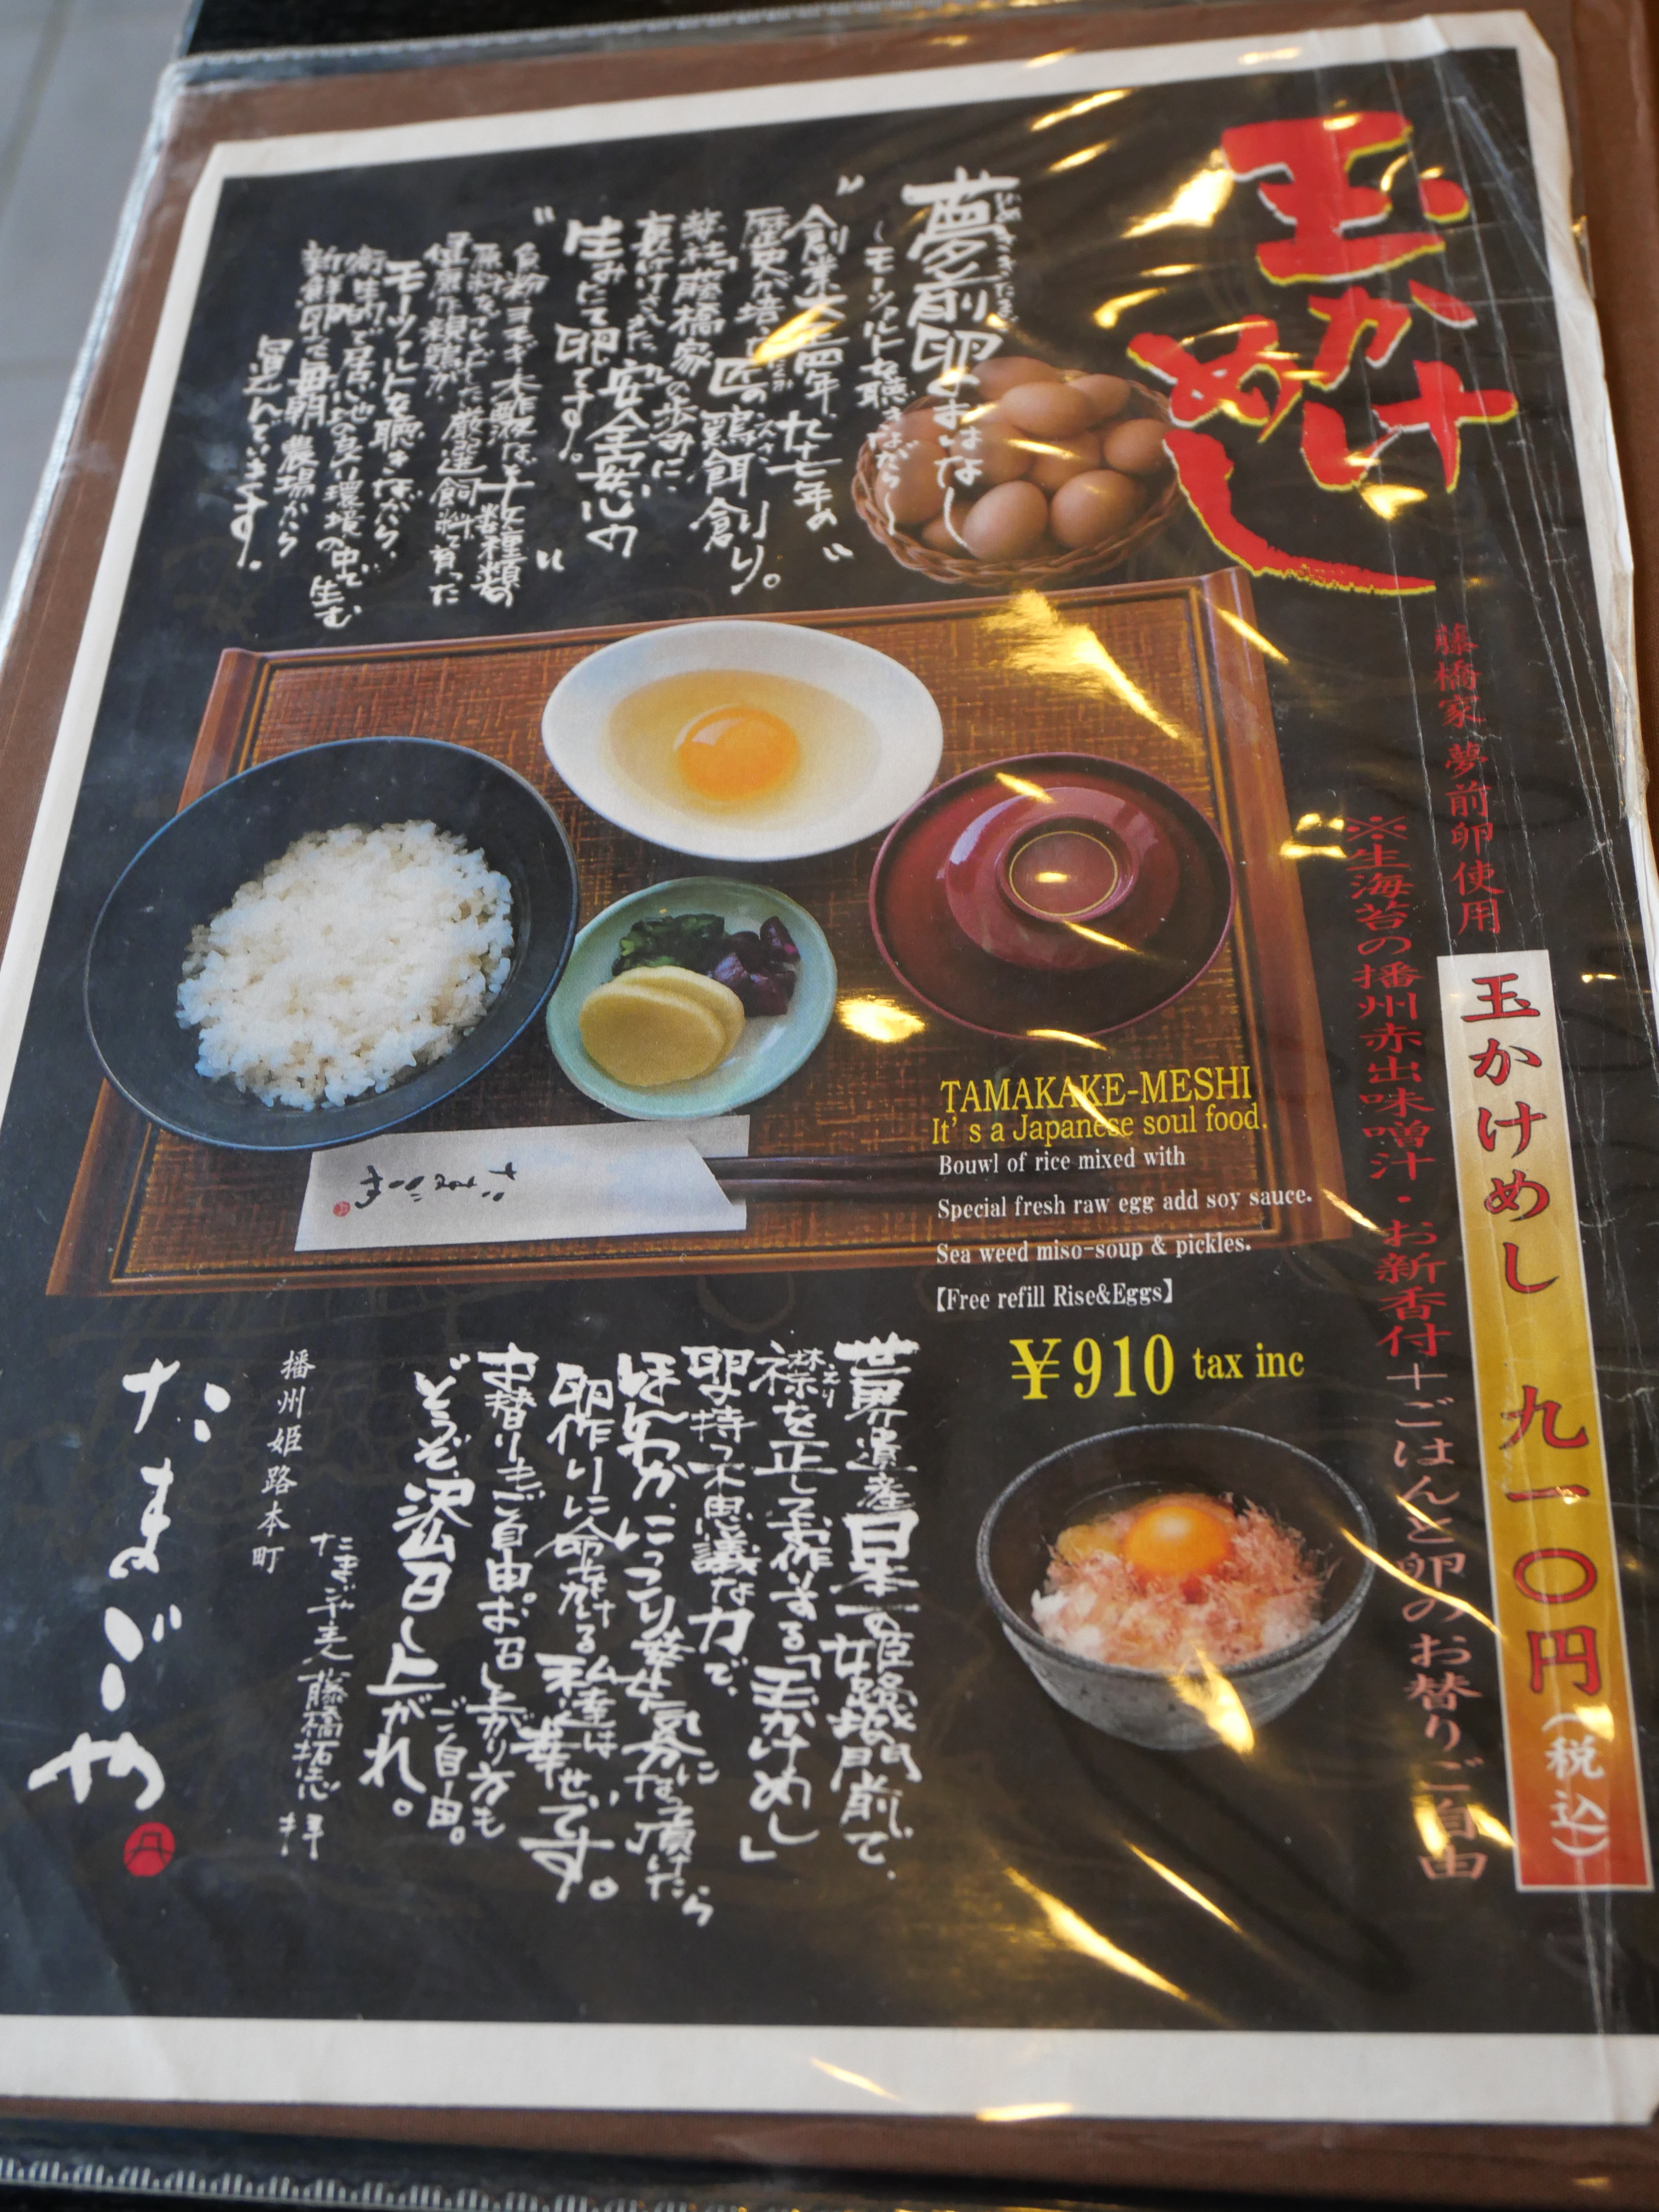 玉かけ
めし
藤橋家 夢前卵使用
玉かけめし 九一〇円(税込)
※生海苔の播州赤出味噌汁・お新香付+ごはんと卵のお替りご自由
夢前卵ものはなし
~モーツァルトを聴きながら~
"創業大正四年、九十七年の"
歴史が培った匠の鶏餌創り。
弊社「藤橋家」の歩みに
裏付けされた、安全安心の
生みたて卵です。
"魚粉・ヨモギ・木酢液など十数種類の
原料をブレンドした厳選飼料で育った
健康な親鶏が、
モーツァルトを聴きながら、
衛生的で居心地の良い環境の中で生む
新鮮卵を毎朝農場から
運んでいます。
TAMAKAKE-MESHI
It's a Japanese soul food.
Bouwl of rice mixed with
Special fresh raw egg add soy sauce.
Sea weed miso-soup & pickles.
【Free refill Rise&Eggs】
¥910 tax inc
世界遺産日本一の姫路城の門前で、
襟を正してお作りする「玉かけめし」
卵の持つ不思議な力で、
ほんわか、にっこり、幸せ気分になって頂けたら
卵作りに命をかける私達は幸せです。
お替りもご自由。お召し上がり方も
ご自由。
どうぞ、沢山召し上がれ。
たまごや主人 藤橋拓志 拝
播州姫路本町
たまごや